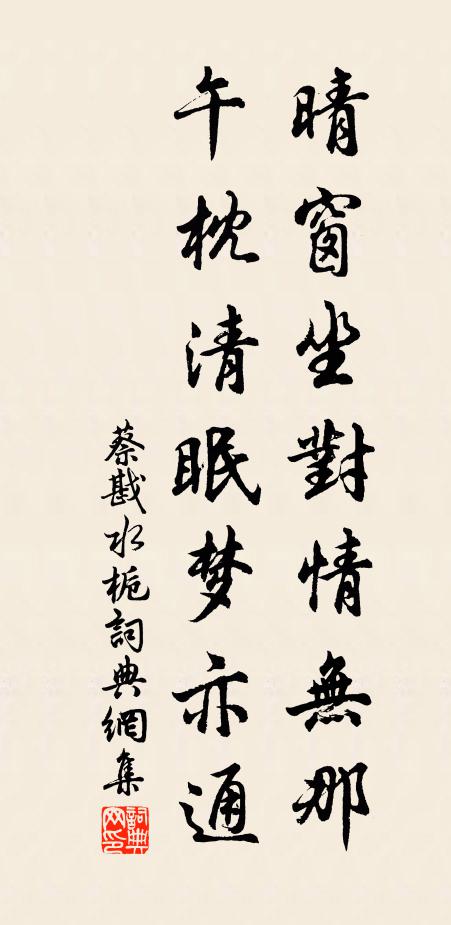 晴窗坐對情無那
午枕清眠梦亦通
蔡戡水栀詞典網集
詞典網印